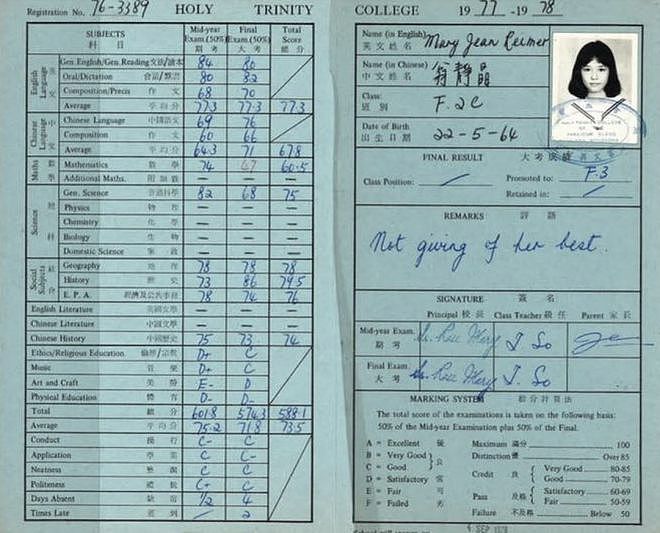 Registration No. 76-3389 HOLY TRINITY
SUBJECTS 科目 Mid-year Exam.(50%) 期考 Final Exam.(50%) 大考 Total Score 總分
English Language 英文
Gen. English/Gen. Reading 文法/讀本 84 80
Oral/Dictation 會話/默書 80 82
Composition/Precis 作文 68 70
Average 平均分 77.3 77.3 77.3
Chinese Language 中文
Chinese Language 中國語文 69 76
Composition 作文 60 66
Average 平均分 64.3 71 67.8
Maths 數學
Mathematics 數學 74 47 60.5
Additional Maths. 附加數 — — —
Science 科
Gen. Science 普通科學 82 68 75
Physics 物理 — — —
Chemistry 化學 — — —
Biology 生物 — — —
Domestic Science 家政 — — —
Social Subjects 社會
Geography 地理 78 78 78
History 歷史 73 86 79.5
E. P. A. 經濟及公共事務 78 74 76
English Literature 英國文學 — — —
Chinese Literature 中國文學 — — —
Chinese History 中國歷史 75 73 74
Ethics/Religious Education 倫理/宗教 D+ C
Music 音樂 D+ C
Art and Craft 美勞 E- D
Physical Education 體育 D- D-
Total 總分 601.8 574.3 588.1
Average 平均分 75.2 71.8 73.5
Conduct 操行 C- C
Application 學業 C C-
Neatness 整潔 C C
Politeness 禮貌 C+ C
Days Absent 缺課 1/2 4
Times Late 遲到 / 2
COLLEGE 1977-1978
Name (in English) 英文姓名 Mary Jean Reimer
Name (in Chinese) 中文姓名 翁靜晶
Class: 班別 F. 2C
Date of Birth 出生日期 22-5-64
FINAL RESULT 大考成績
Class Position: / Promoted to: F.3
Retained in: /
REMARKS 評語
Not giving of her best.
SIGNATURE 簽名
Principal 校長 Class Teacher 級任 Parent 家長
Mid-year Exam. 期考 J. So
Final Exam. 大考 J. So
MARKING SYSTEM 給分計算法
The total score of the examinations is taken on the following basis:
50% of the Mid-year Examination plus 50% of the Final.
A = Excellent 優 Maximum 滿分 100
B = Very Good 良 Distinction 優 Over 85
C = Good Credit 良 Very Good 80-85
Good 70-79
D = Satisfactory 常
E = Fair 可 Pass 及格 Satisfactory 60-69
Fair 50-59
F = Failed 劣 Failure 不及格 Below 50
SEP 1978